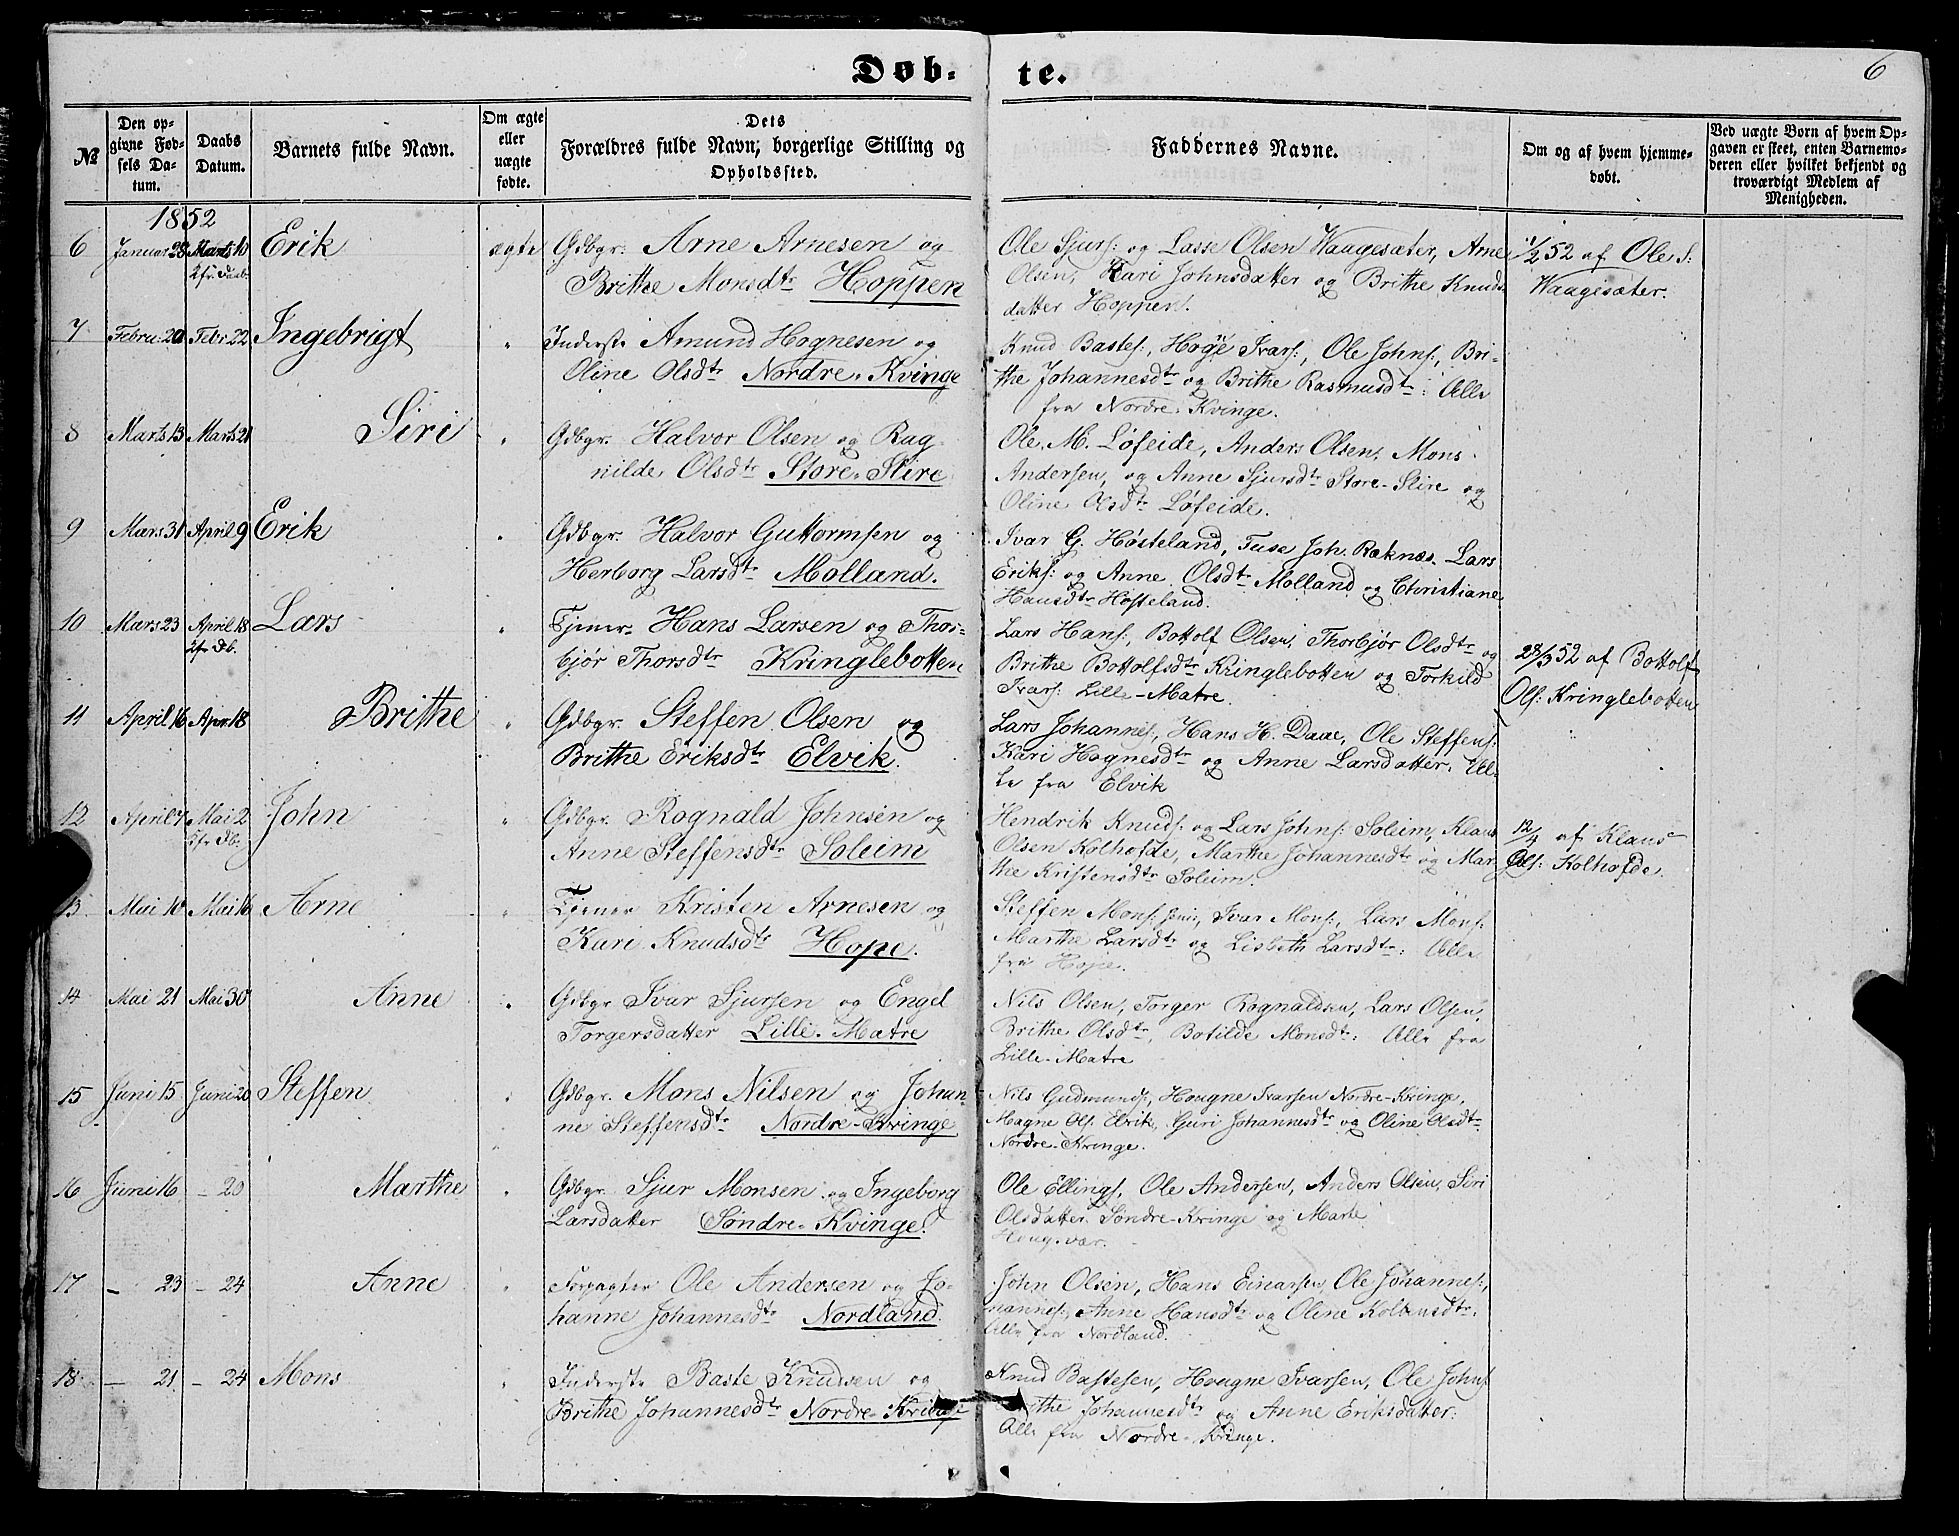 Døb-te. 6
№
Den op-
givne Fød-
sels Da-
tum.
Daabs
Datum.
Barnets fulde Navn.
Om ægte
eller
uægte
fødte.
Dets
Forældres fulde Navn, borgerlige Stilling og
Opholdssted.
Faddernes Navne.
Om og af hvem hjemme-
døbt.
Ved uægte Børn af hvem Op-
gaven er skeet, enten Barnemo-
deren eller hvilket bekjendt og
troværdigt Medlem af
Menigheden.
1852
6 Januar 28 Marts 10 Erik ægte Gdbgr: Arne Arnesen og
2 fr. Daab
Brithe Monsdtr Hoppen
Ole Sjurs: og Lasse Olsen Waagesæter, Arne
Olsen, Kari Johnsdatter og Brithe Knuds
datter Hoppen.
1/2 52 af Ole S:
Waagesæter.
7 Febru: 20 Febr 22 Ingebrigt " Inderste Amund Hognesen og
Oline Olsdtr Nordre-Kvinge
Knud Bastes:, Hogne Ivars:, Ole Johns:, Bri-
the Johannesdtr og Brithe Rasmusdtr: Alle
fra Nordre-Kvinge.
8 Marts 13 Marts 21 Siri " Gdbgr. Halvor Olsen og Rag-
nilde Olsdtr Store-Slire
Ole M. Løfeide, Anders Olsen, Mons
Andersen, og Anne Sjursdtr Store-Slire og
Oline Olsdtr Løfeide.
9 Mars 31 April 9 Erik " Gdbgr. Halvor Guttormsen og
Herborg Larsdtr Molland.
Ivar G. Høsteland, Tuse Joh. Ræknes, Lars
Eriks: og Anne Olsdtr Molland og Christiane
Hansdtr Høsteland.
10 Mars 23 April 18 Lars " Tjener Hans Larsen og Thor-
2 fr Db.
bjør Thorsdtr Kringlebotten
Lars Hans:, Bottolf Olsen, Thorbjør Olsdtr og
Brithe Bottolfsdtr Kringlebotten og Torkild
Ivars: Lille-Matre.
28/3 52 af Bottolf
Ols: Kringlebotten
11 April 16 Apr. 18 Brithe " Gdbgr. Steffen Olsen og
Brithe Eriksdtr Elvik.
Lars Johannes:, Hans H. Daae, Ole Steffens:
Kari Hognesdtr og Anne Larsdatter. Al-
le fra Elvik
12 April 7 Mai 2 John " Gdbgr. Rognald Johnsen og
5 fr Db.
Anne Steffensdtr Soleim
Hendrik Knuds: og Lars Johns: Soleim, Klaus
Olsen Kolhofde, Marthe Johannesdtr og Mar
the Kristensdtr Soleim.
12/4 af Klaus
Ols: Kolhofde.
13 Mai 10 Mai 16 Arne " Tjener Kristen Arnesen og
Kari Knudsdtr Hope.
Steffen Mons: sen:, Ivar Mons:, Lars Mons:
Marthe Larsdtr og Lisbeth Larsdtr: Alle
fra Hope.
14 Mai 21 Mai 30 Anne " Gdbgr Ivar Sjursen og Engel
Torgersdatter Lille-Matre
Nils Olsen, Torger Rognaldsen, Lars Olsen,
Brithe Olsdtr, Botilde Monsdtr: Alle fra
Lille-Matre
15 Juni 15 Juni 20 Steffen " Gdbgr. Mons Nilsen og Johan-
ne Steffensdtr Nordre-Kvinge
Nils Gudmunds:, Hougne Ivarsen Nordre-Kvinge,
Magne Ols. Elvik, Guri Johannesdtr og Oline Olsdtr
Nordre-Kvinge.
16 Juni 16 - 20 Marthe " Gdbgr Sjur Monsen og Ingeborg
Larsdatter Søndre-Kvinge.
Ole Ellings, Ole Andersen, Anders Olsen, Siri
Olsdatter Søndre-Kvinge og Marte
17 - 23 - 24 Anne " Forpagter Ole Andersen og Jo-
hanne Johannesdtr Nordland.
John Olsen, Hans Einarsen, Ole Johannes:,
Anne Hansdtr og Oline Kolbensdtr:
Alle fra Nordland.
18 - 21 - 24 Mons " Inderste Baste Knudsen og
Brithe Johannesdtr Nordre-Kvinge
Knud Bastesen, Hougne Ivarsen, Ole Johns
Brithe Johannesdtr og Anne Eriksdatter:
Alle fra Nordre-Kvinge.